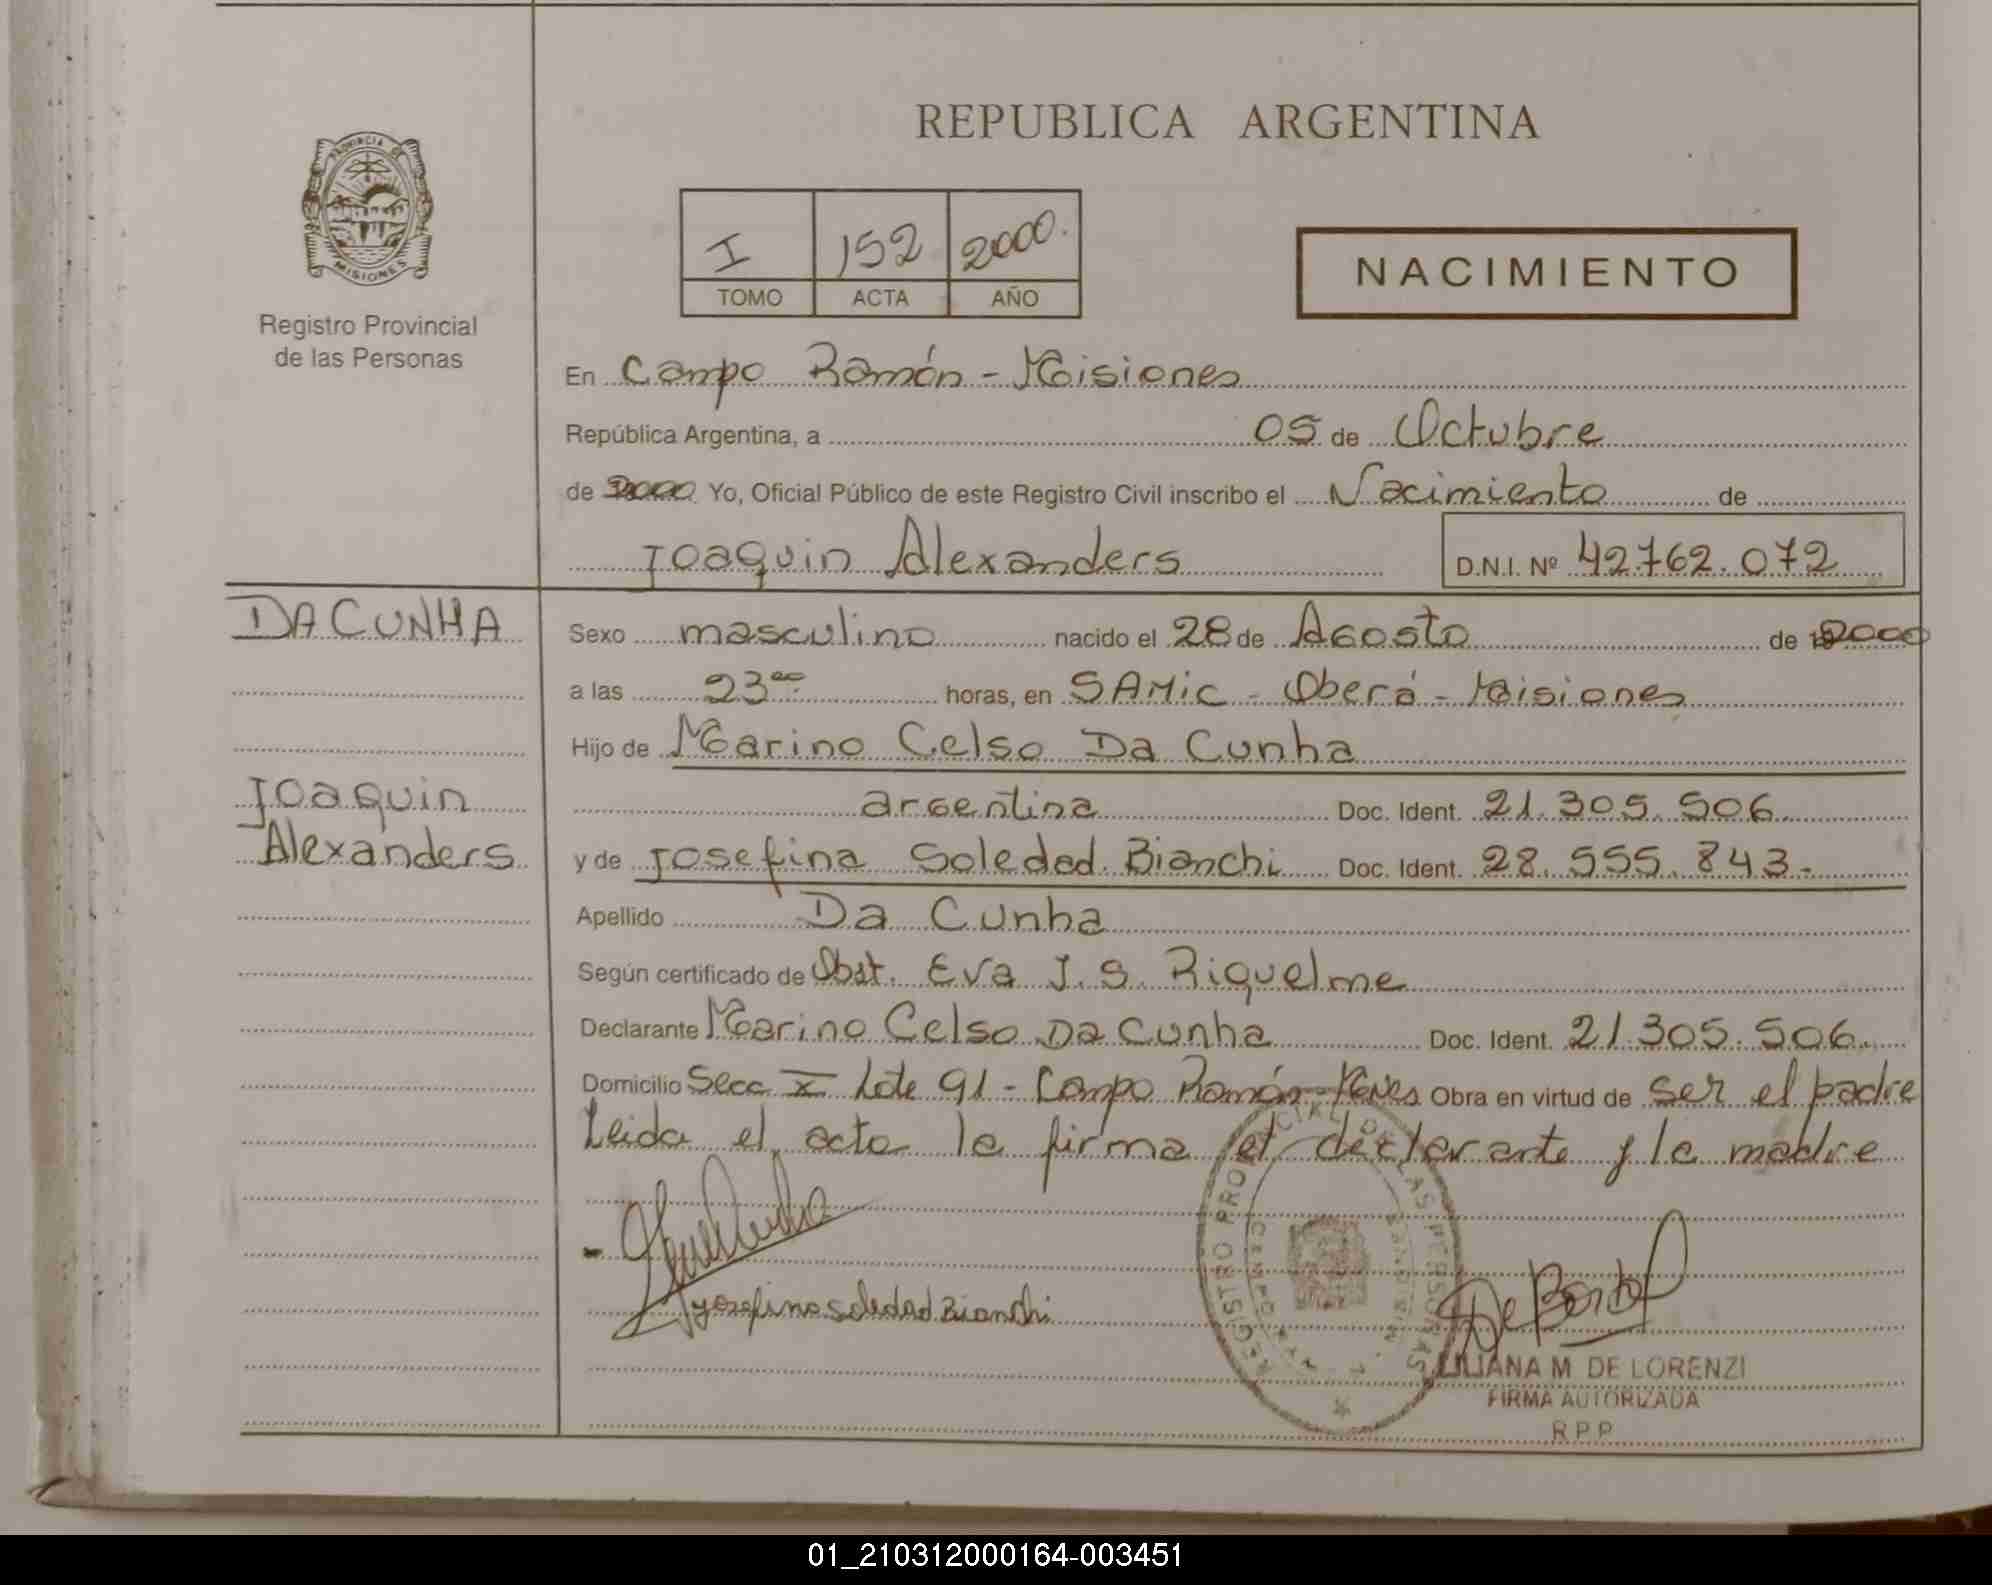 REPUBLICA ARGENTINA
PROVINCIA DE
MISIONES
Registro Provincial
de las Personas
I 152 2000.
TOMO ACTA AÑO
NACIMIENTO
En Campo Ramón - Misiones
República Argentina, a 05 de Octubre
de 2000 Yo, Oficial Público de este Registro Civil inscribo el Nacimiento de
Joaquin Alexanders D.N.I. Nº 42.762.072
DA CUNHA
Joaquin
Alexanders
Sexo masculino nacido el 28 de Agosto de 2000
a las 23 horas, en SAMIC - Oberá - Misiones
Hijo de Marino Celso Da Cunha
argentina Doc. Ident. 21.305.506
y de Josefina Soledad Bianchi Doc. Ident. 28.555.843.-
Apellido Da Cunha
Según certificado de Obst. Eva J. S. Riquelme
Declarante Marino Celso Da Cunha Doc. Ident. 21.305.506.
Domicilio Secc X Lote 91 - Campo Ramón - Obra en virtud de ser el padre
Leida el acta la firma el declarante y la madre
Josefina Soledad Bianchi
REGISTRO PROVINCIAL DE LAS PERSONAS
LILIANA M DE LORENZI
FIRMA AUTORIZADA
R P P
01_210312000164-003451